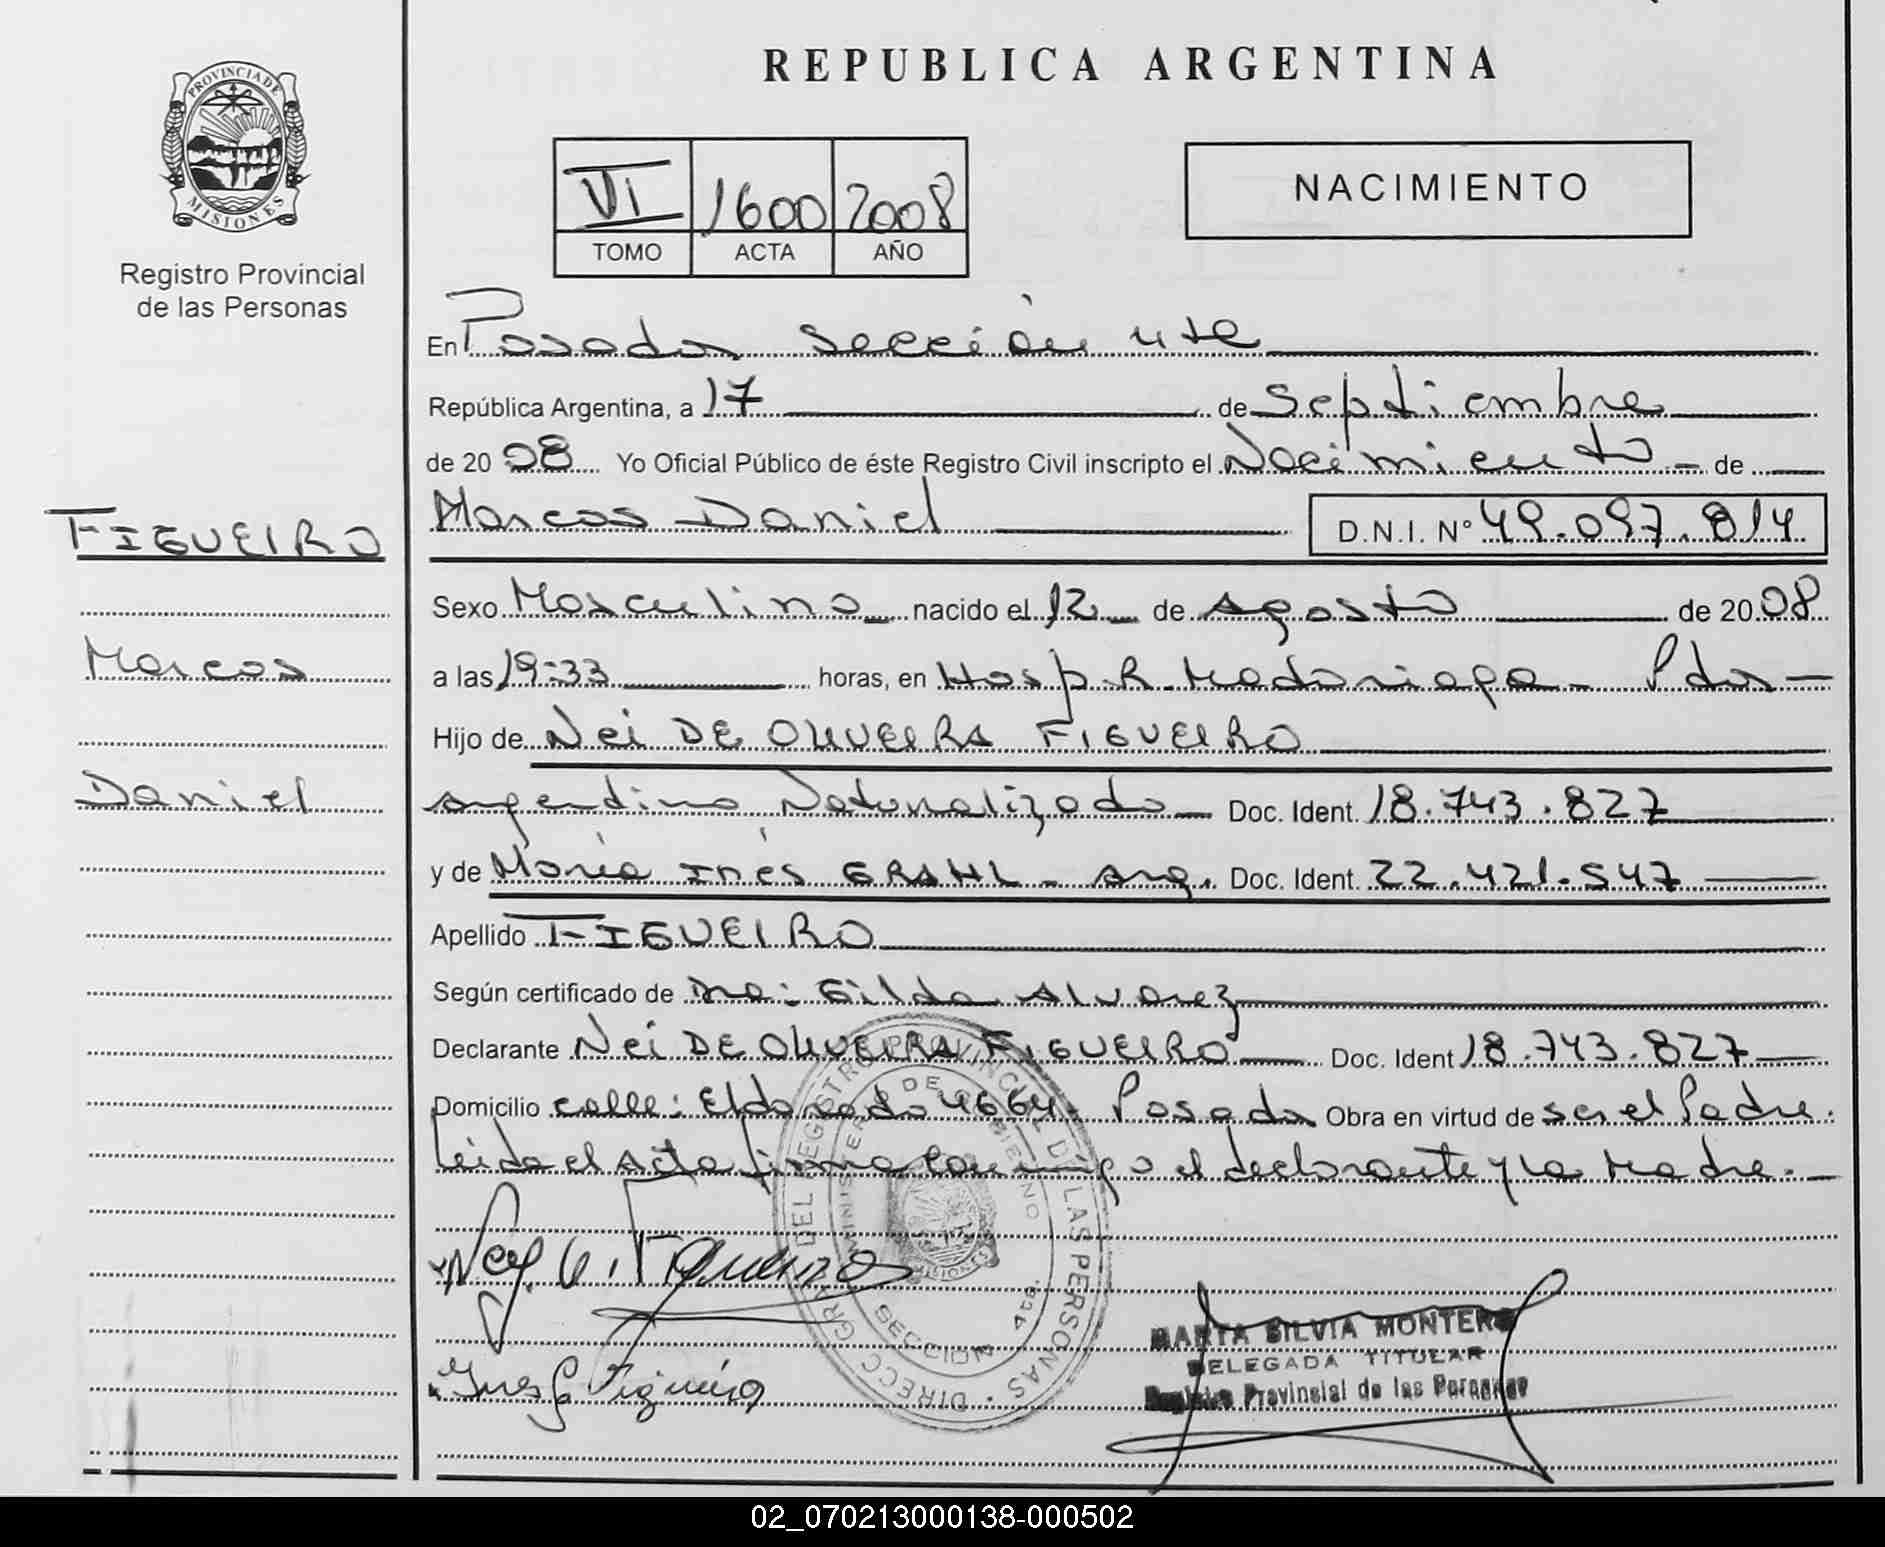 REPUBLICA ARGENTINA
PROVINCIA DE MISIONES
Registro Provincial
de las Personas
VI 1600 2008
TOMO ACTA AÑO
NACIMIENTO
En Posadas Sección 4ta
República Argentina, a 17 de Septiembre
de 2008 Yo Oficial Público de éste Registro Civil inscripto el Nacimiento - de
Marcos Daniel D.N.I. N° 49.097.814
FIGUEIRO
Marcos
Daniel
Sexo Masculino nacido el 12 de Agosto de 2008
a las 19:33 horas, en Hosp. R. Madariaga - Pdas -
Hijo de Nei DE OLIVEIRA FIGUEIRO
Argentino Naturalizado - Doc. Ident. 18.743.827
y de María Inés GRAHL - Arg. Doc. Ident. 22.421.547
Apellido FIGUEIRO
Según certificado de Dra: Gilda Alvarez
Declarante Nei DE OLIVEIRA FIGUEIRO Doc. Ident 18.743.827
Domicilio calle: Eldorado 4664. Posadas Obra en virtud de ser el Padre.
Leida el Acta firma conmigo el declarante y la Madre.
DIRECC GRAL DEL REGISTRO PROVINCIAL DE LAS PERSONAS
MINISTERIO DE GOBIERNO
MISIONES
SECCION 4ta.
Inés G Figueiró
MARTA SILVIA MONTERO
DELEGADA TITULAR
Registro Provincial de las Personas
02_070213000138-000502